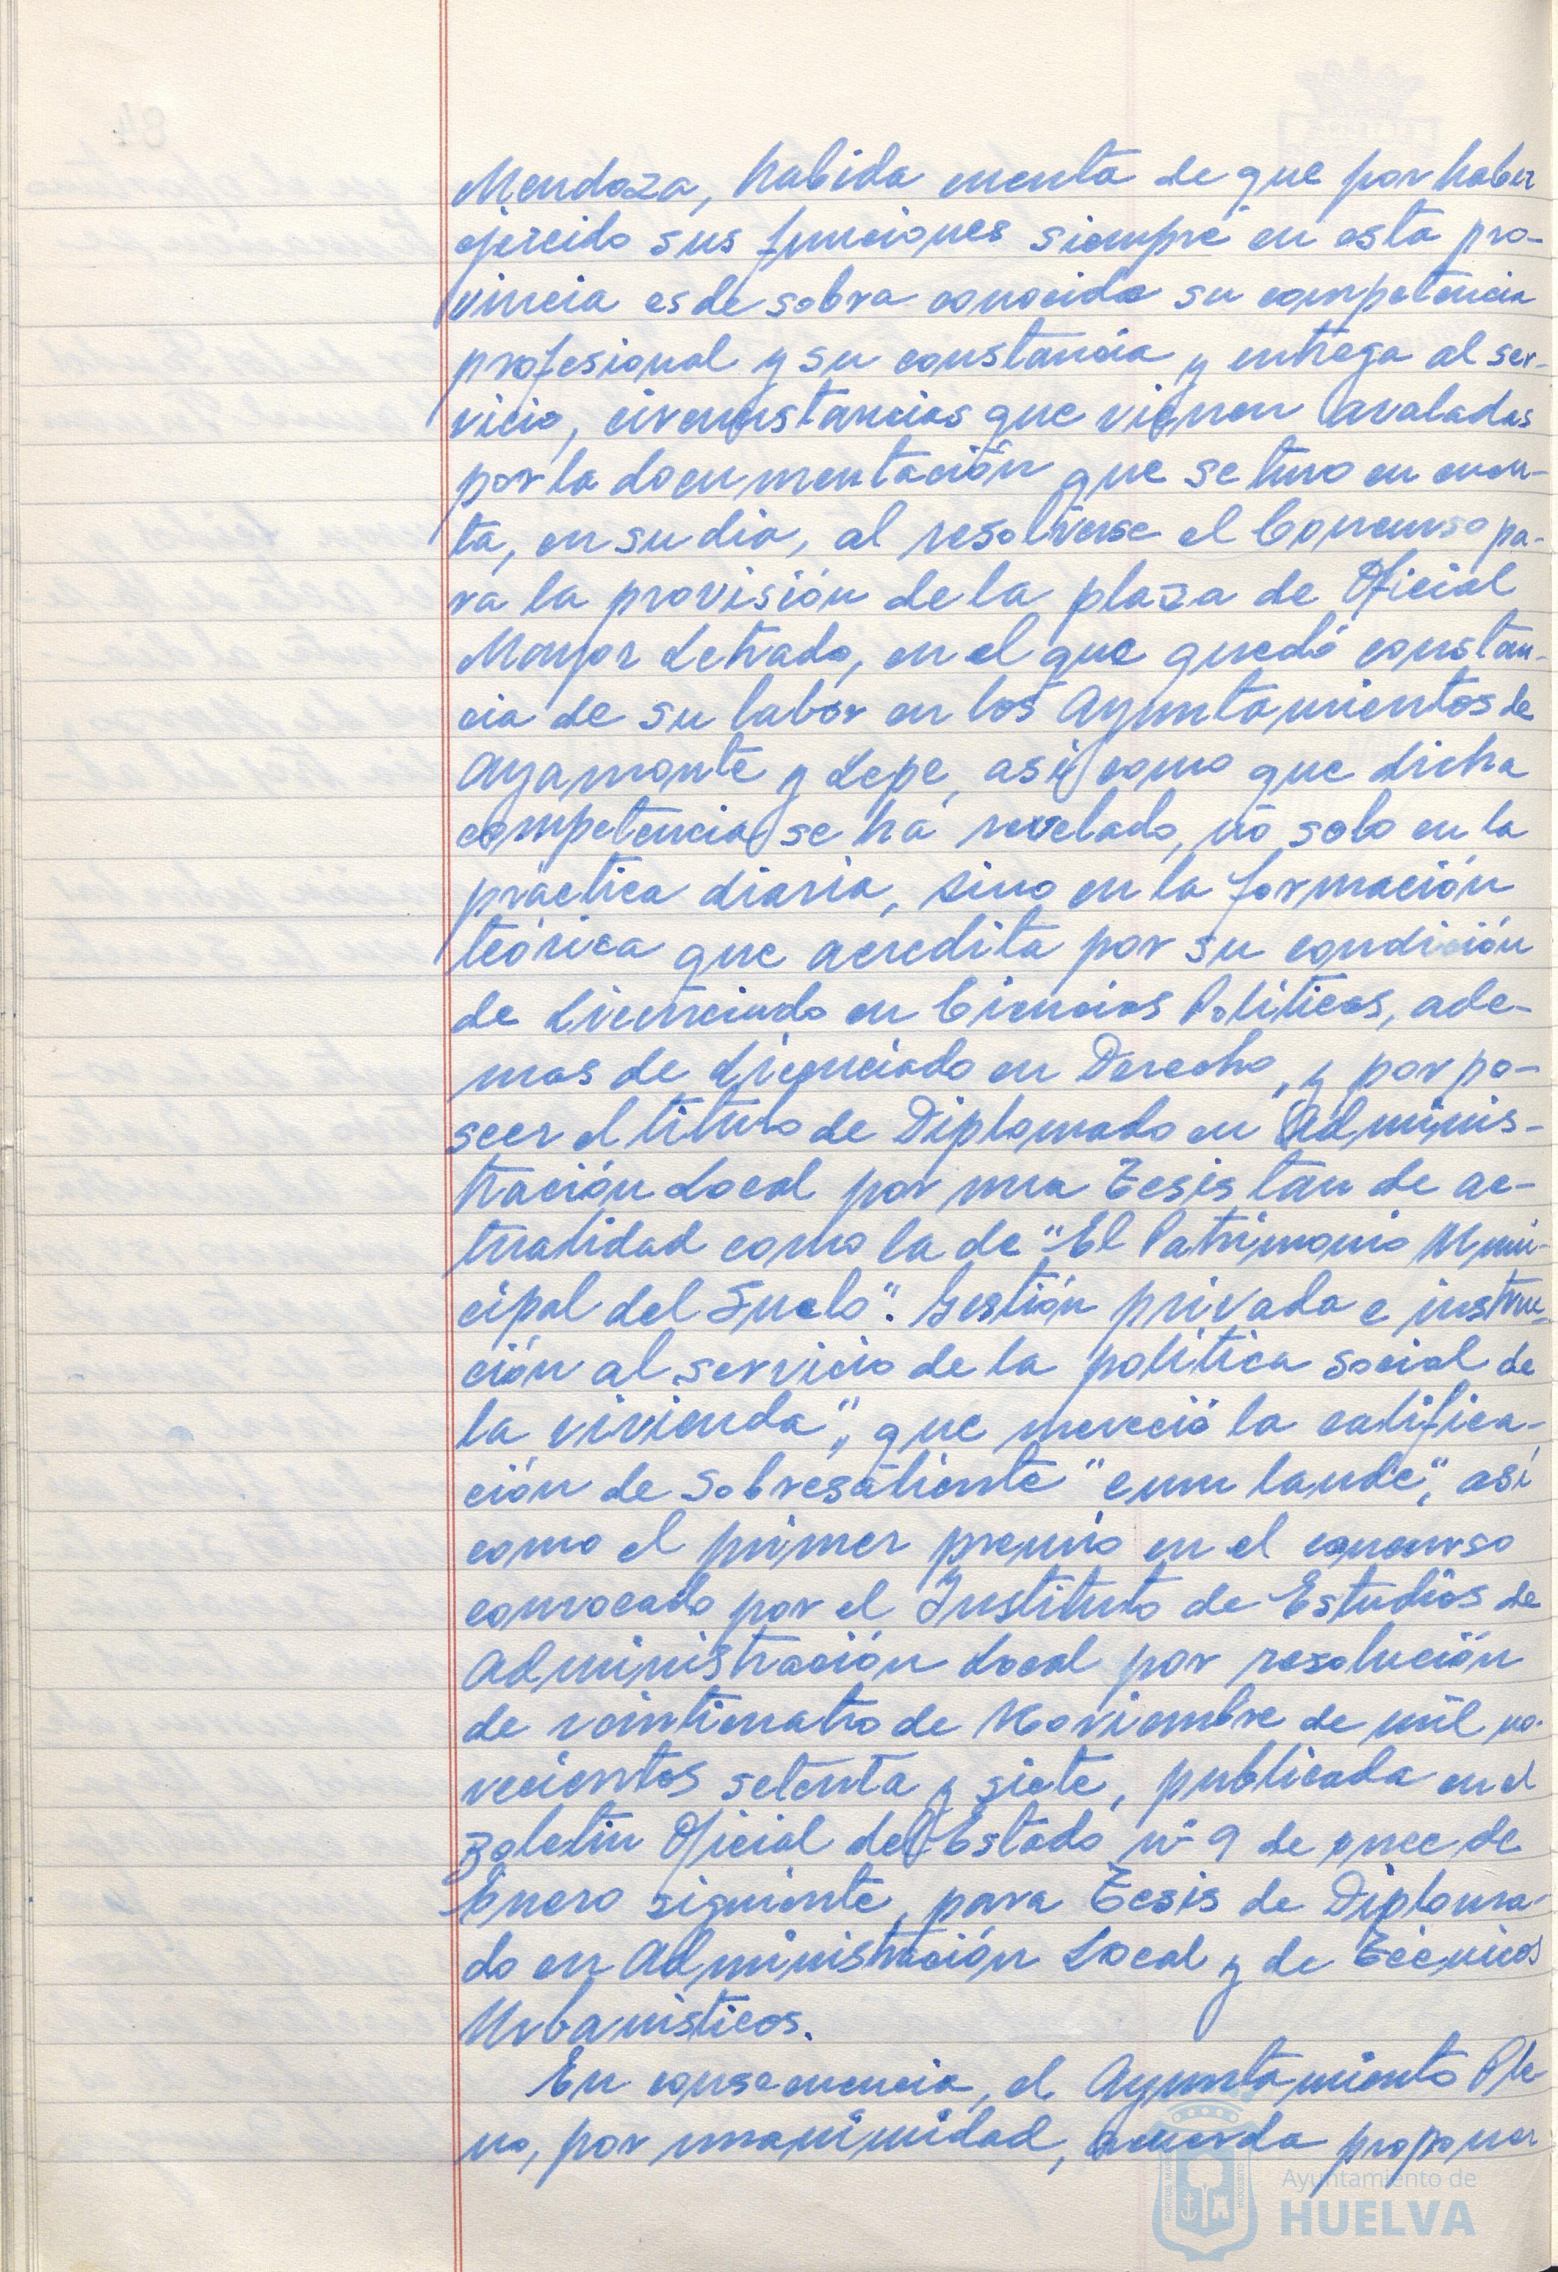 Mendoza, habida cuenta de que por haber
ejercido sus funciones siempre en esta pro-
vincia es de sobra conocida su competencia
profesional y su constancia y entrega al ser-
vicio, circunstancias que vienen avaladas
por la documentación que se tuvo en cuen-
ta, en su dia, al resolverse el Concurso pa-
ra la provisión de la plaza de Oficial
Mayor Letrado, en el que quedó constan-
cia de su labor en los Ayuntamientos de
Ayamonte y Lepe, asi como que dicha
competencia se há revelado, no solo en la
práctica diaria, sino en la formación
teórica que acredita por su condición
de Licenciado en Ciencias Politicas, ade-
mas de Licenciado en Derecho, y por po-
seer el titulo de Diplomado en Adminis-
tración Local por una Tesis tan de ac-
tualidad como la de "El Patrimonio Muni-
cipal del Suelo". Gestión privada e instru-
ción al servicio de la politica social de
la vivienda", que mereció la califica-
ción de Sobresaliente "cum laude", asi
como el primer premio en el concurso
convocado por el Instituto de Estudios de
Administración Local por resolución
de veinticuatro de Noviembre de mil no-
vecientos setenta y siete, publicada en el
Boletin Oficial del Estado nº 9 de once de
Enero siguiente, para Tesis de Diploma-
do en Administración Local y de Técnicos
Urbanisticos.
En consecuencia, el Ayuntamiento Ple-
no, por unanimidad, acuerda proponer
Ayuntamiento de
HUELVA